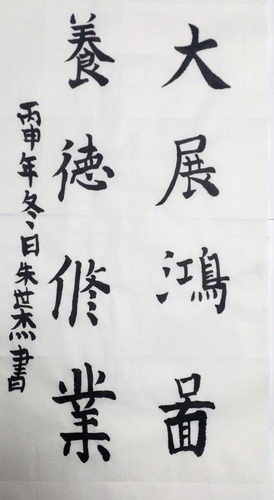 大展鴻啚
養德修業
丙申年冬日朱世杰書